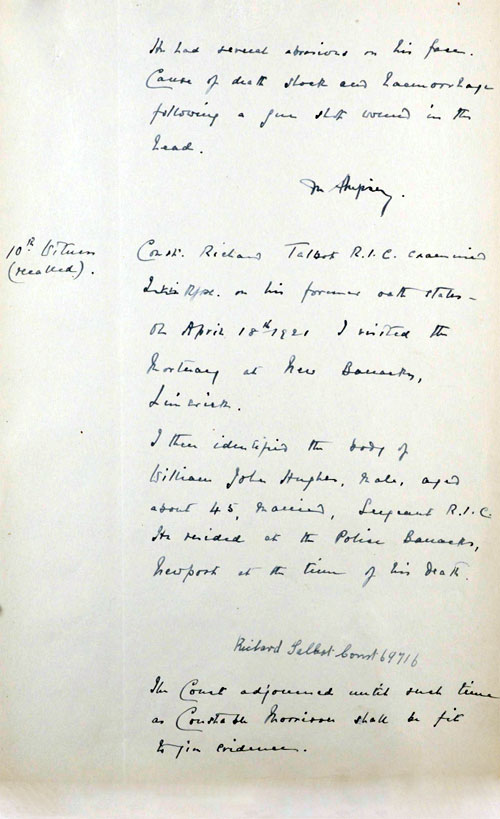 He had several abrasions on his face.
Cause of death shock and haemorrhage
following a gun shot wound in the
head.
10th Witness
(recalled).
Const. Richard Talbot R.I.C. examined
on his former oath states -
On April 18th 1921 I visited the
Mortuary at New Barracks,
Limerick.
I then identified the body of
William John Hughes, male, aged
about 45, married, Sergeant R.I.C.
He resided at the Police Barracks,
Newport at the time of his death.
Richard Talbot Const 69716
The Court adjourned until such time
as Constable Morrison shall be fit
to give evidence.